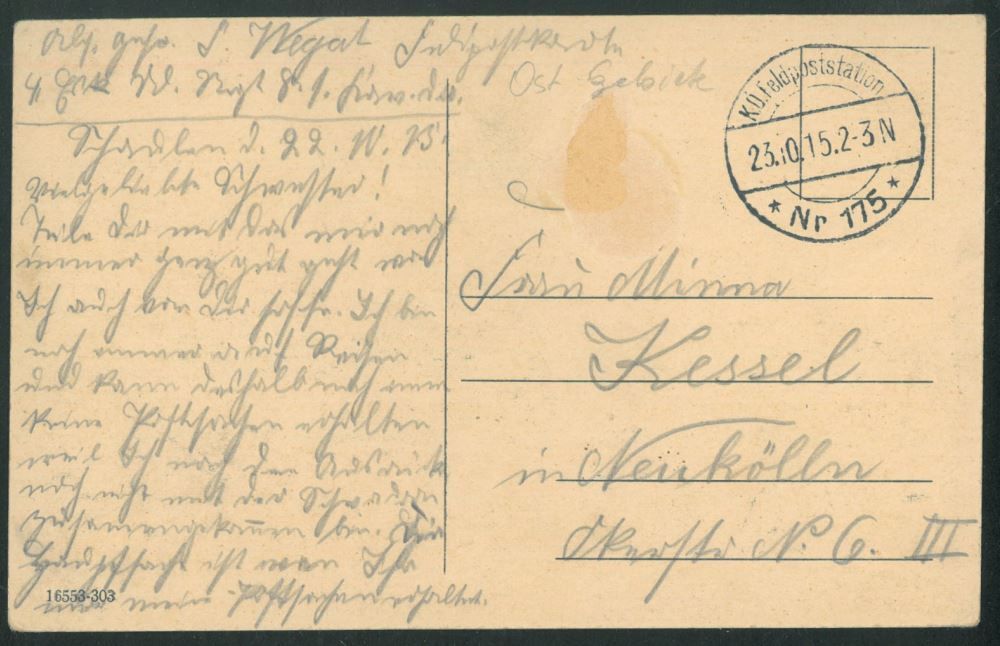 Abs. Gefr. F Wegat Feldpostkarte
4 Esk. Rgt 8. 1. Kav. Div.
Ost Gebiet
K.D. Feldpoststation
23.10.15.2-3N
* Nr 175 *
Schaulen d. 22. 10. 15.
Vielgeliebte Schwester!
Teile Dir mit das mir noch
immer ganz gut geht was
Ich auch von Dir hoffe. Ich bin
noch immer auf Reisen
und kann deshalb noch immer
keine Postsachen erhalten
weil Ich noch
noch nicht mit der Schwadron
zusammengekommen bin. Die
Hauptsache ist wen Ihr
nur meine Postsachen erhaltet.
Frau Minna
Kessel
in Neukölln
Okerstr N. 6. III
16553-303